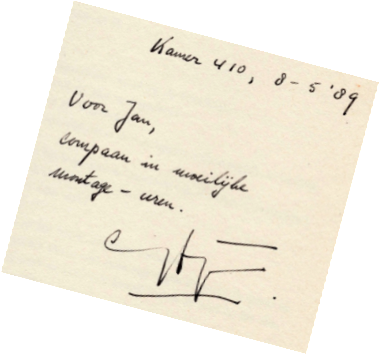 Kamer 410, 8-5'89
Voor Jan,
compaan in moeilijke
montage-uren.